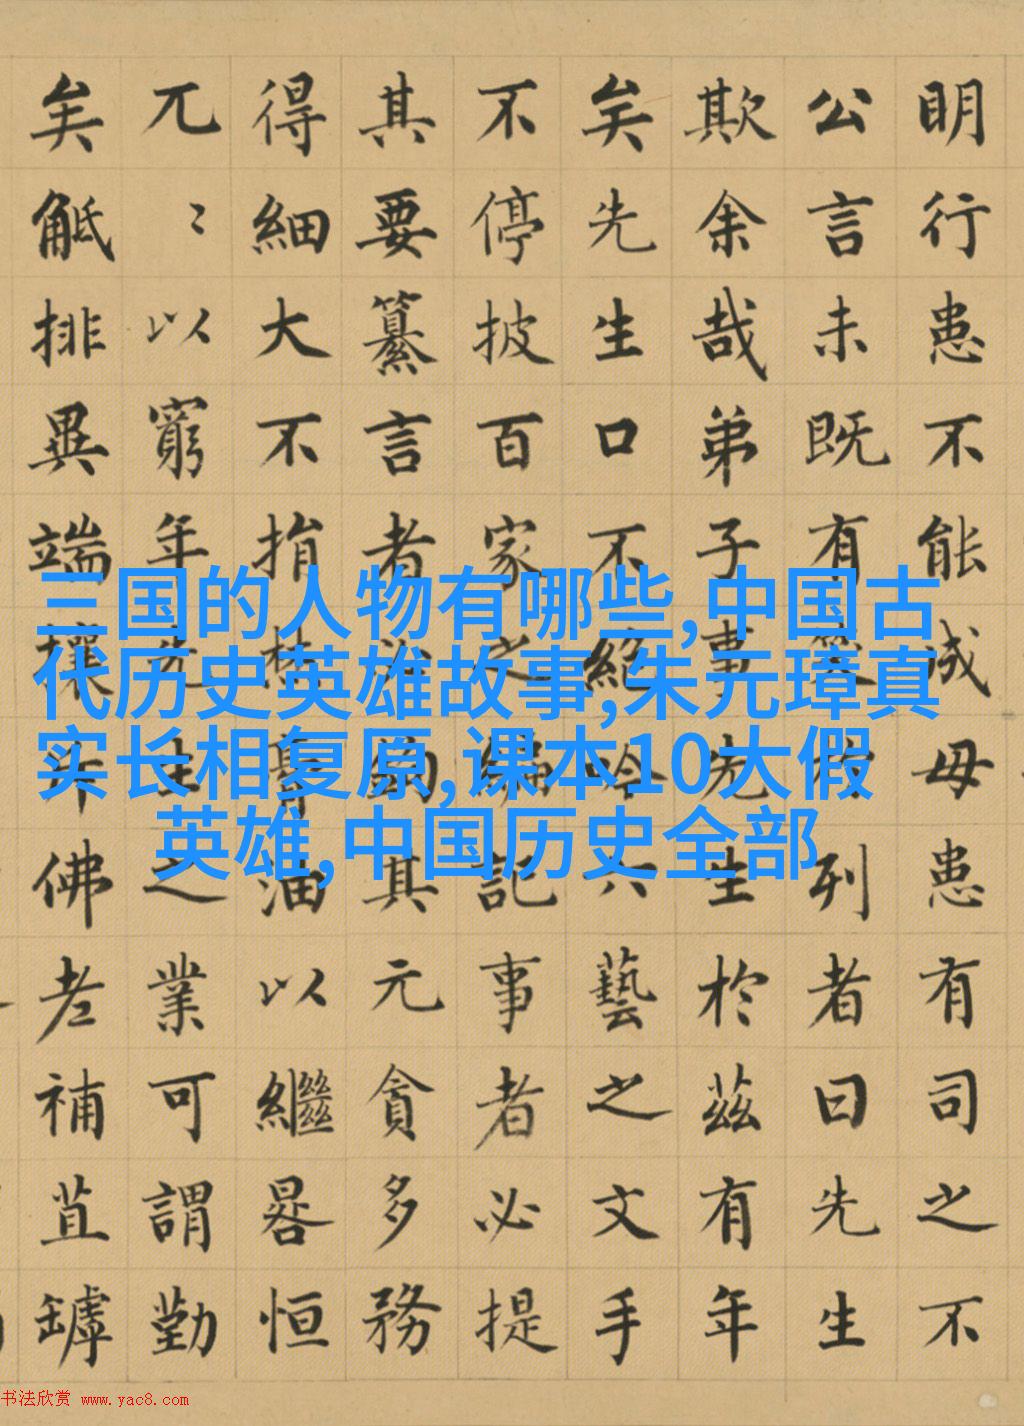 明行患不能成毋患有司之不
公言未既有笑於列者曰先生
欺余哉弟子事先生於茲有年
矣先生口不絕吟六藝之文手
不停披百家之編記事者必提
其要纂言者必鉤其元貪多務
得細大不捐焚膏油以繼晷恒
兀〻以窮年先生之業可謂勤
矣觝排異端攘斥佛老補苴罅
三国的人物有哪些,中国古
代历史英雄故事,朱元璋真
实长相复原,课本10大假
英雄,中国历史全部
书法欣赏 www.yac8.com